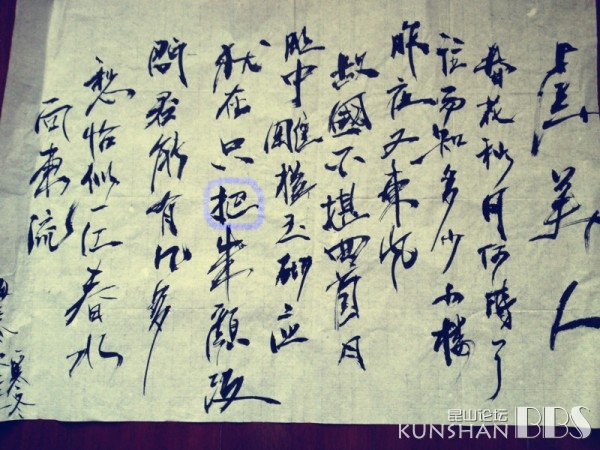 虞美人
春花秋月何時了
往事知多少小樓
昨夜又東風
故國不堪回首月
明中雕欄玉砌应
犹在只把朱顏改
問君能有几多
愁恰似一江春水
向東流
寒冬
昆山论坛
KUNSHAN BBS